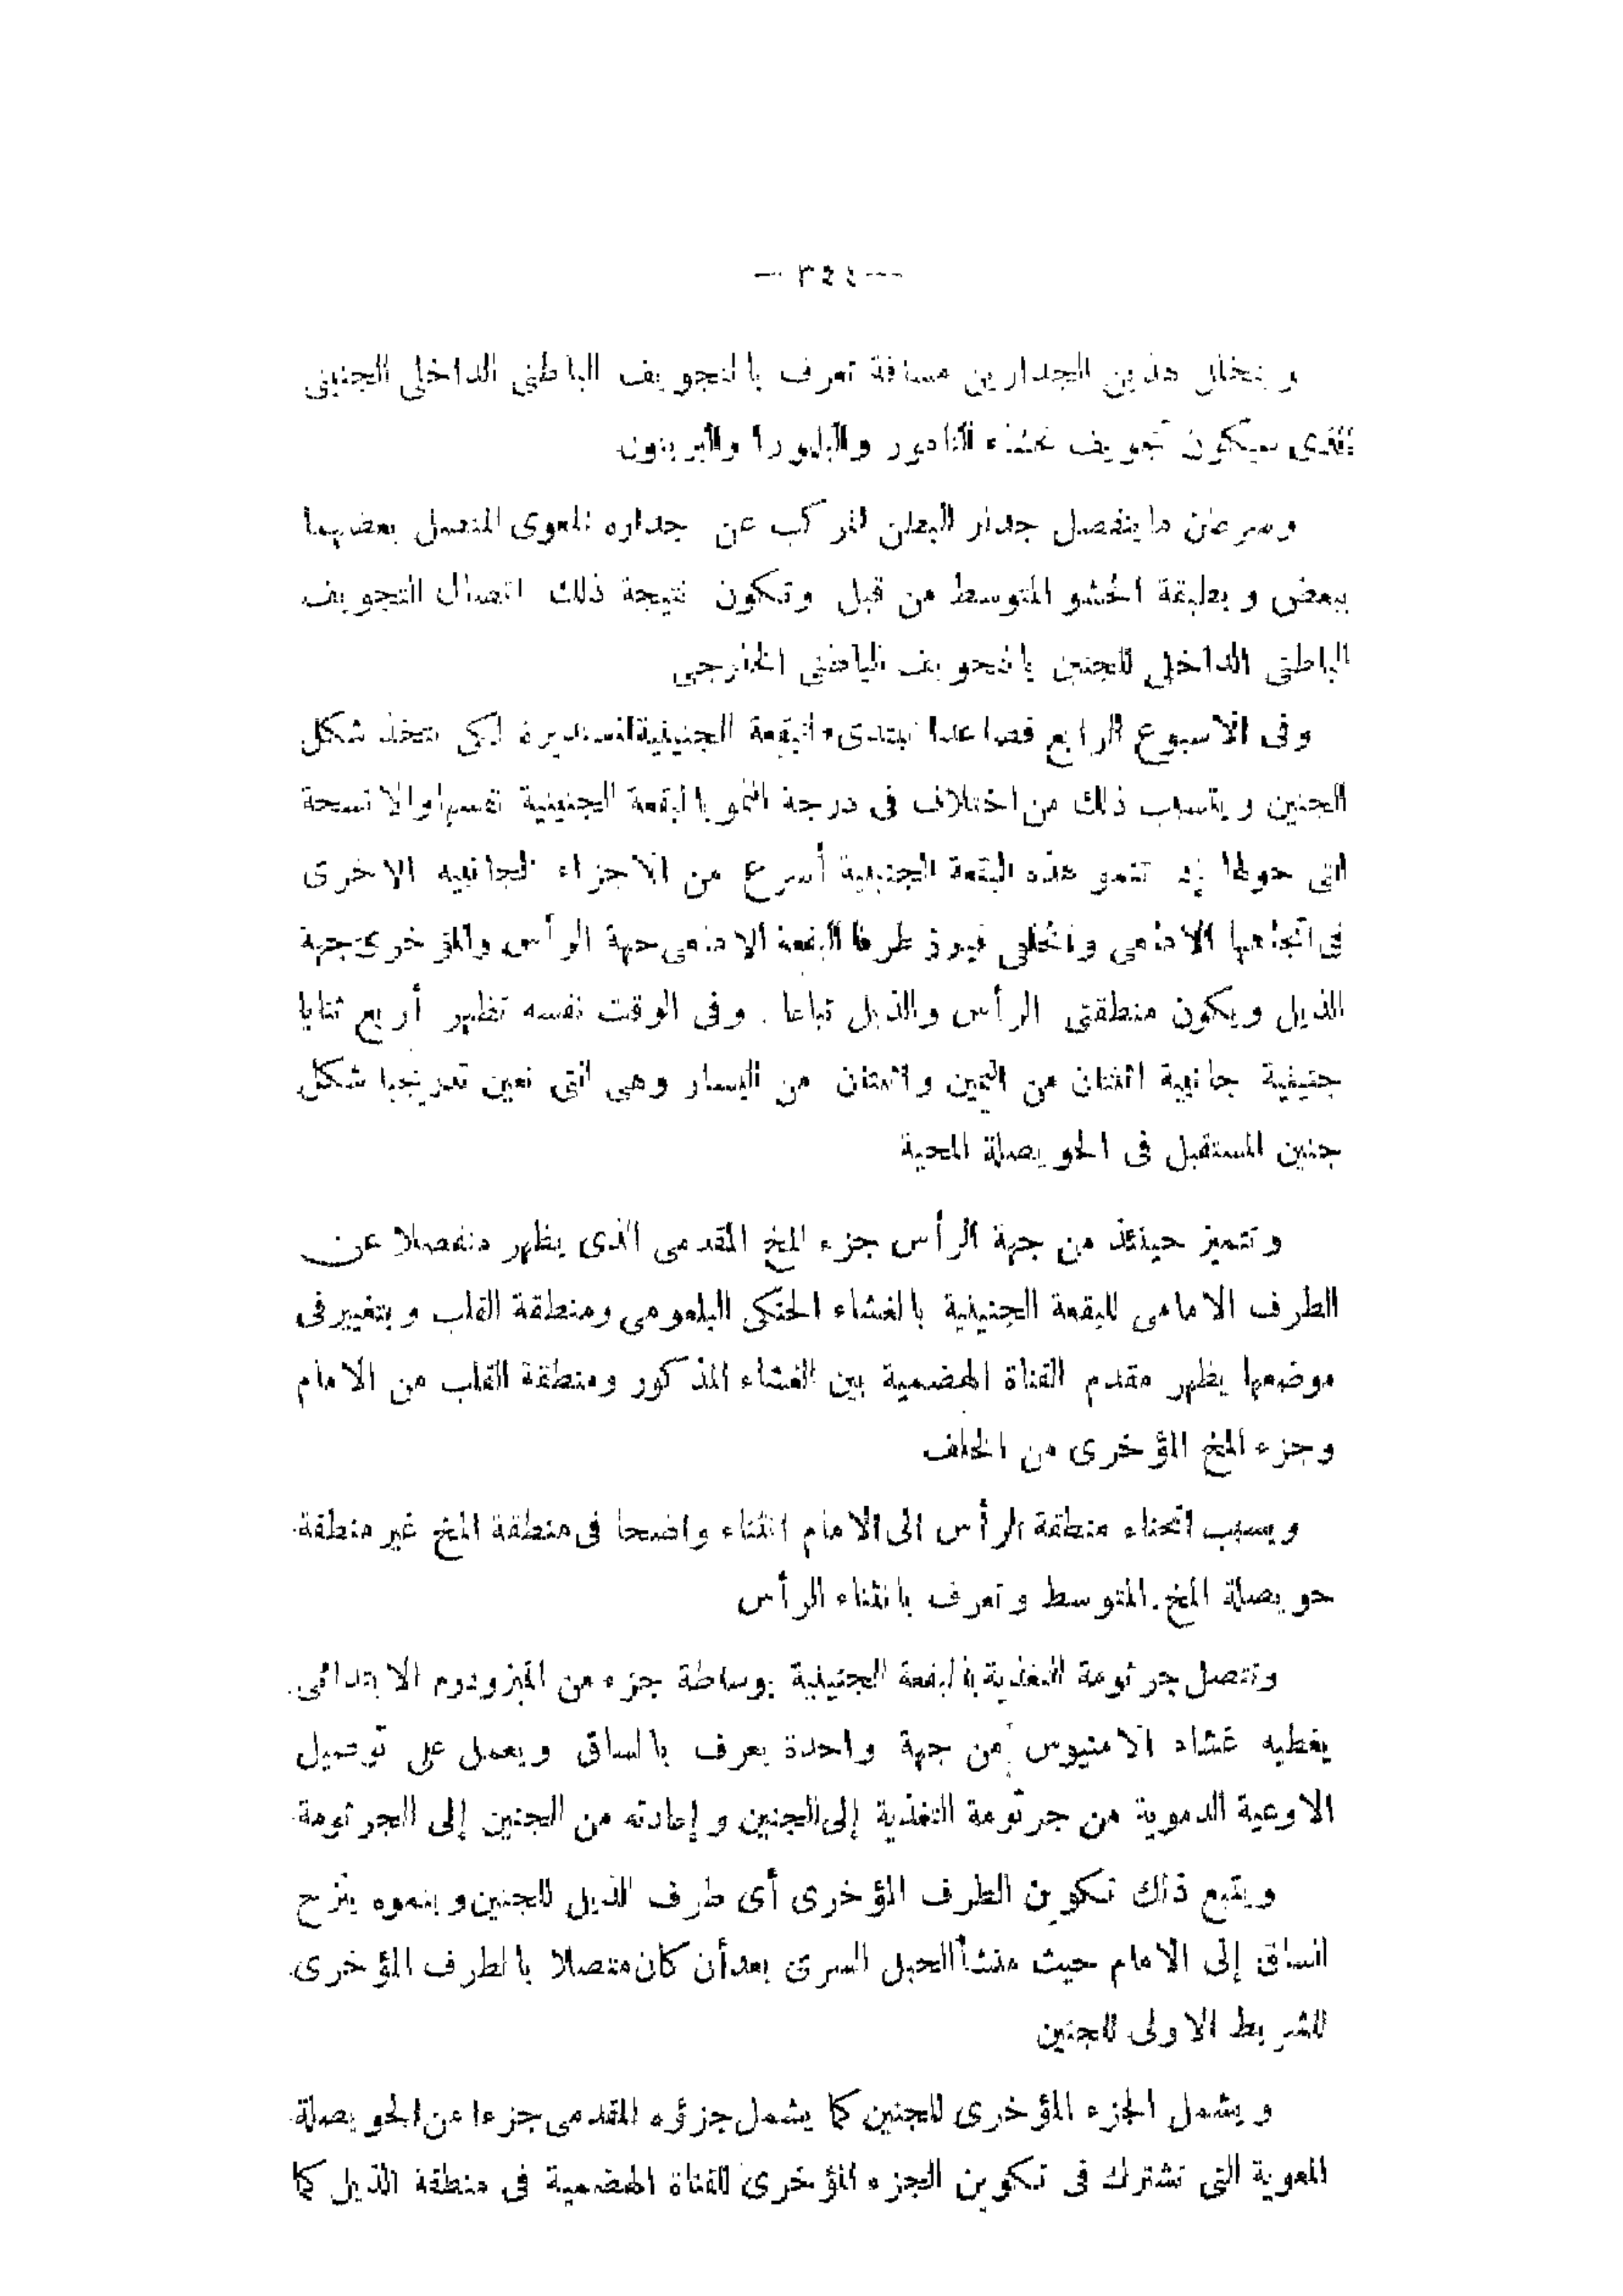 — ٣٤٤ —
و يتخلل هذين الجدارين مسافة تعرف بالتجويف الباطنى الداخلى الجنينى
الذى سيكون تجويف غشاء التامور والبلورا والبريتون
وسرعان ما ينفصل جدار البطن المركب عن جداره المعوى المتصل بعضهما
ببعض و بطبقة الحشو المتوسط من قبل وتكون نتيجة ذلك اتصال التجويف
الباطنى الداخلى للجنين بالتجويف الباطنى الخارجى
وفى الاسبوع الرابع فصاعدا تبتدىء البقعة الجنينية المستديرة لكى تتخذ شكل
الجنين و يتسبب ذلك من اختلاف فى درجة النمو بالبقعة الجنينية نفسها والانسجة
التى حولها إذ تنمو هذه البقعة الجنينية أسرع من الاجزاء الجانبيه الاخرى
فى اتجاهها الامامى والخلفى فيبرز طرفا البقعة الامامى جهة الرأس والمؤخرى جهة
الذيل ويكون منطقتى الرأس والذيل تباعا . وفى الوقت نفسه تظهر أربع ثنايا
جنينية جانبية اثنتان من اليمين واثنتان من اليسار وهى التى تعين تدريجيا شكل
جنين المستقبل فى الحويصلة المحية
وتتميز حينئذ من جهة الرأس جزء المخ المقدمى الذى يظهر منفصلا عن
الطرف الامامى للبقعة الجنينية بالغشاء الحنكى البلعومى ومنطقة القلب و بتغيير فى
موضعها يظهر مقدم القناة الهضمية بين الغشاء المذكور ومنطقة القلب من الامام
وجزء المخ المؤخرى من الخلف
ويسبب انحناء منطقة الرأس الى الامام انثناء واضحا فى منطقة المخ غير منطقة
حويصلة المخ المتوسط وتعرف بانثناء الرأس
وتتصل جرثومة التغذية بالبقعة الجنينية بوساطة جزء من الميزودوم الابتدائى
يغطيه غشاء الامنيوس من جهة واحدة يعرف بالساق ويعمل على توصيل
الاوعية الدموية من جرثومة التغذية إلى الجنين و إعادته من الجنين إلى الجرثومة
ويتبع ذلك تكوين الطرف المؤخرى أى طرف الذيل للجنين و بنموه ينزح
الساق إلى الامام حيث منشأ الحبل السرى بعد أن كان متصلا بالطرف المؤخرى
للشريط الاولى للجنين
و يشمل الجزء المؤخرى للجنين كما يشمل جزؤه المقدمى جزءا من الحويصلة
المعوية التى تشترك فى تكوين الجزء المؤخرى للقناة الهضمية فى منطقة الذيل كما